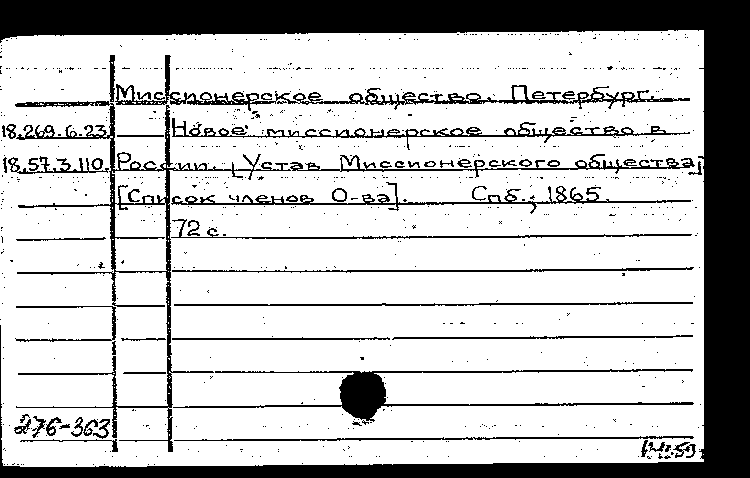 Миссионерское общество. Петербург.
18.269.6.23. Новое миссионерское общество в
18.57.3.110. России. [Устав Миссионерского общества]
[Список членов О-ва]. Спб., 1865.
72 с.
276-363